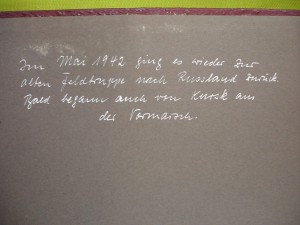 Im Mai 1942 ging es wieder zur
alten Feldtruppe nach Russland zurück
Bald begann auch von Kursk aus
der Vormarsch.